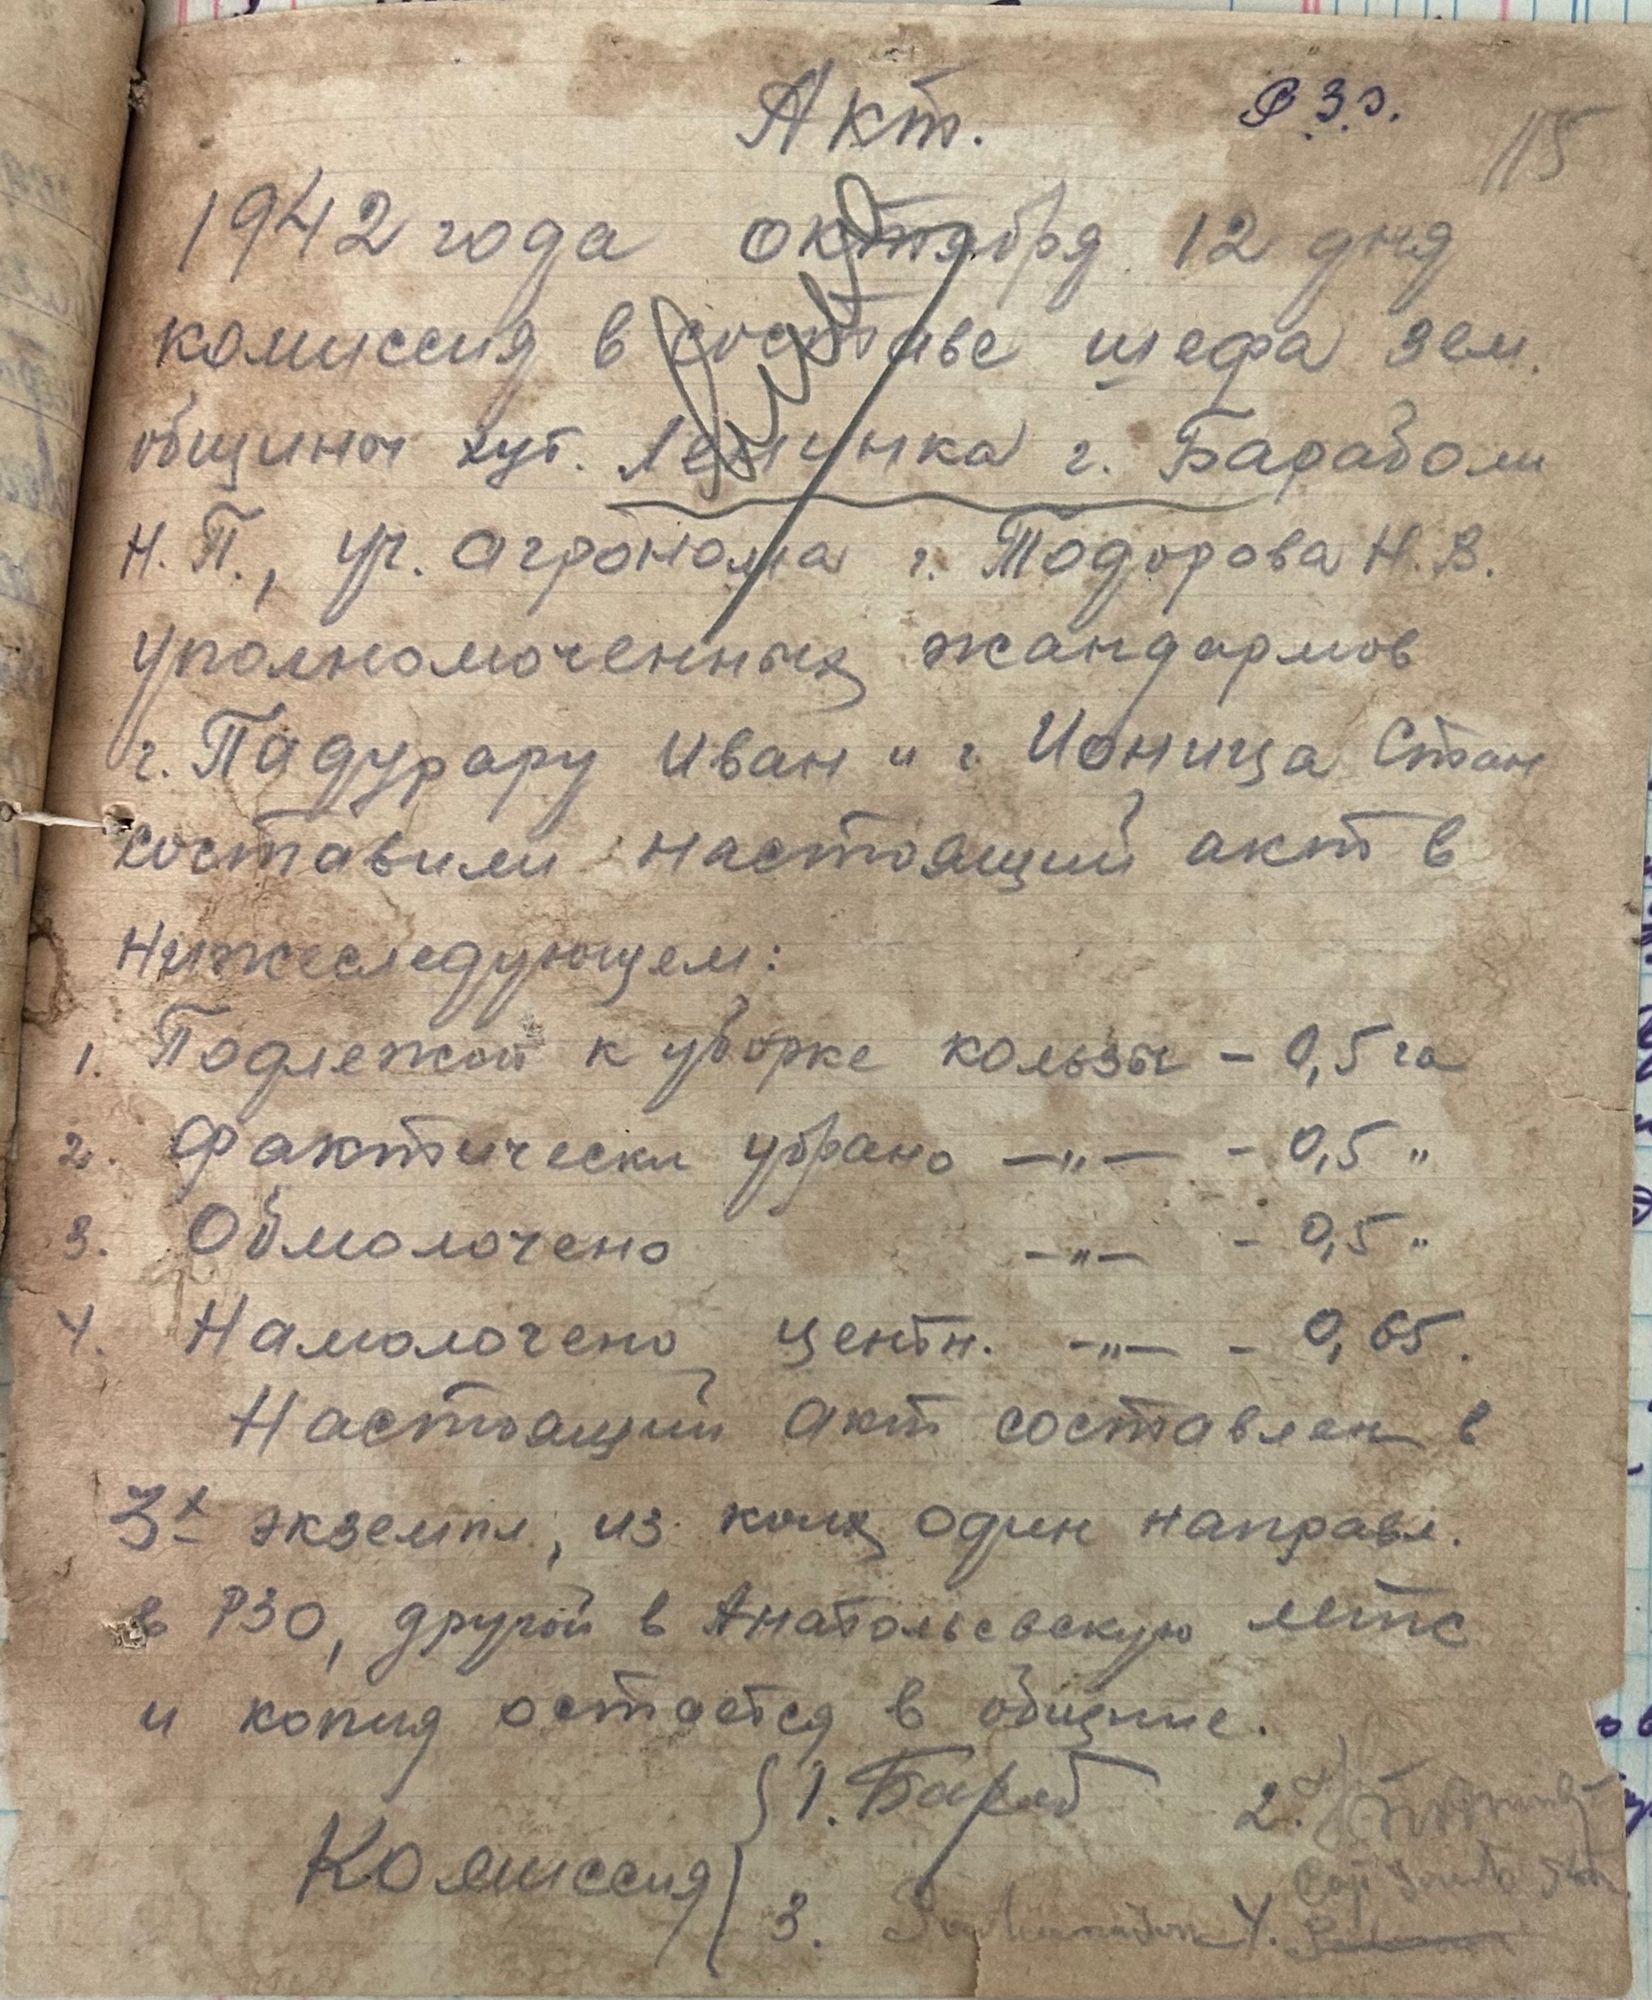 Акт.
Р.З.О.
115
1942 года октября 12 дня
комиссия в составе шефа зем.
общины хут. Ленинка г. Бараболи
Н.П., уч. агронома г. Тодорова Н.В.
уполномоченных жандармов
г. Падурару Иван и г. Ионица Стан
составили настоящий акт в
нижеследующем:
1. Подлежой к уборке кользы - 0,5 га
2. Фактически убрано —„— - 0,5 „
3. Обмолочено —„— - 0,5 „
4. Намолочено центн. —„— - 0,65.
Настоящий акт составлен в
3х экземпл, из коих один направл.
в РЗО, другой в Анатольевскую мтс
и копия остается в общине.
Комиссия
1. Бараб 2.
3. 4.